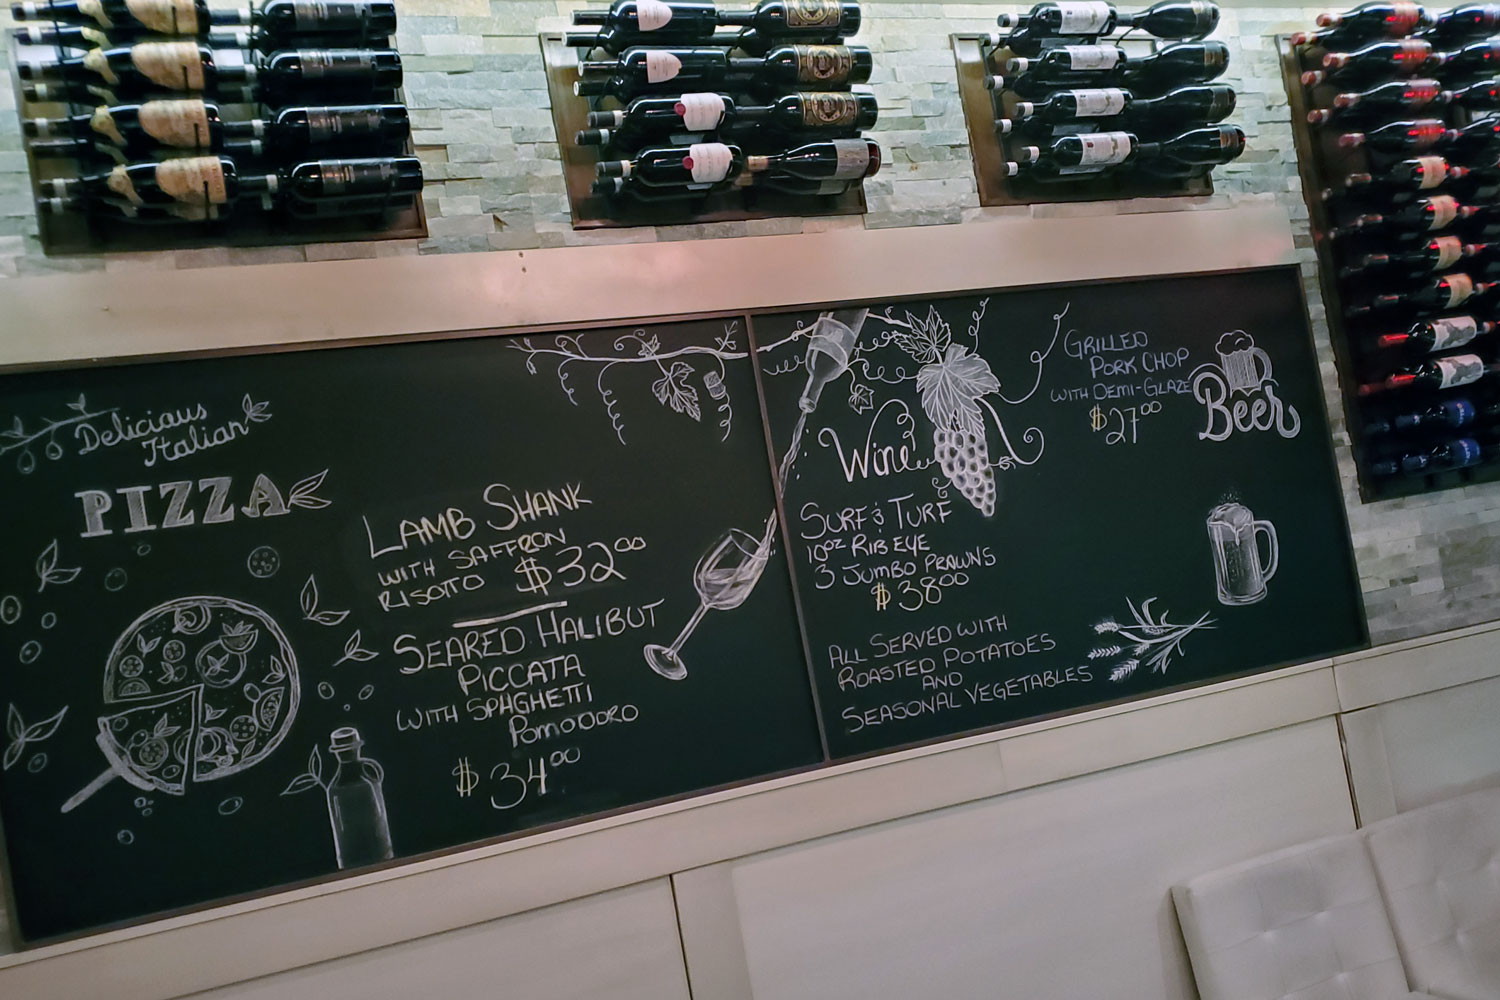 Delicious
Italian
PIZZA
LAMB SHANK
WITH SAFFRON
RISOTTO $32.00
SEARED HALIBUT
PICCATA
WITH SPAGHETTI
POMODORO
$34.00
Wine
SURF & TURF
10oz RIB EYE
3 JUMBO PRAWNS
$38.00
ALL SERVED WITH
ROASTED POTATOES
AND
SEASONAL VEGETABLES
GRILLED
PORK CHOP
WITH DEMI-GLAZE
$27.00
Beer